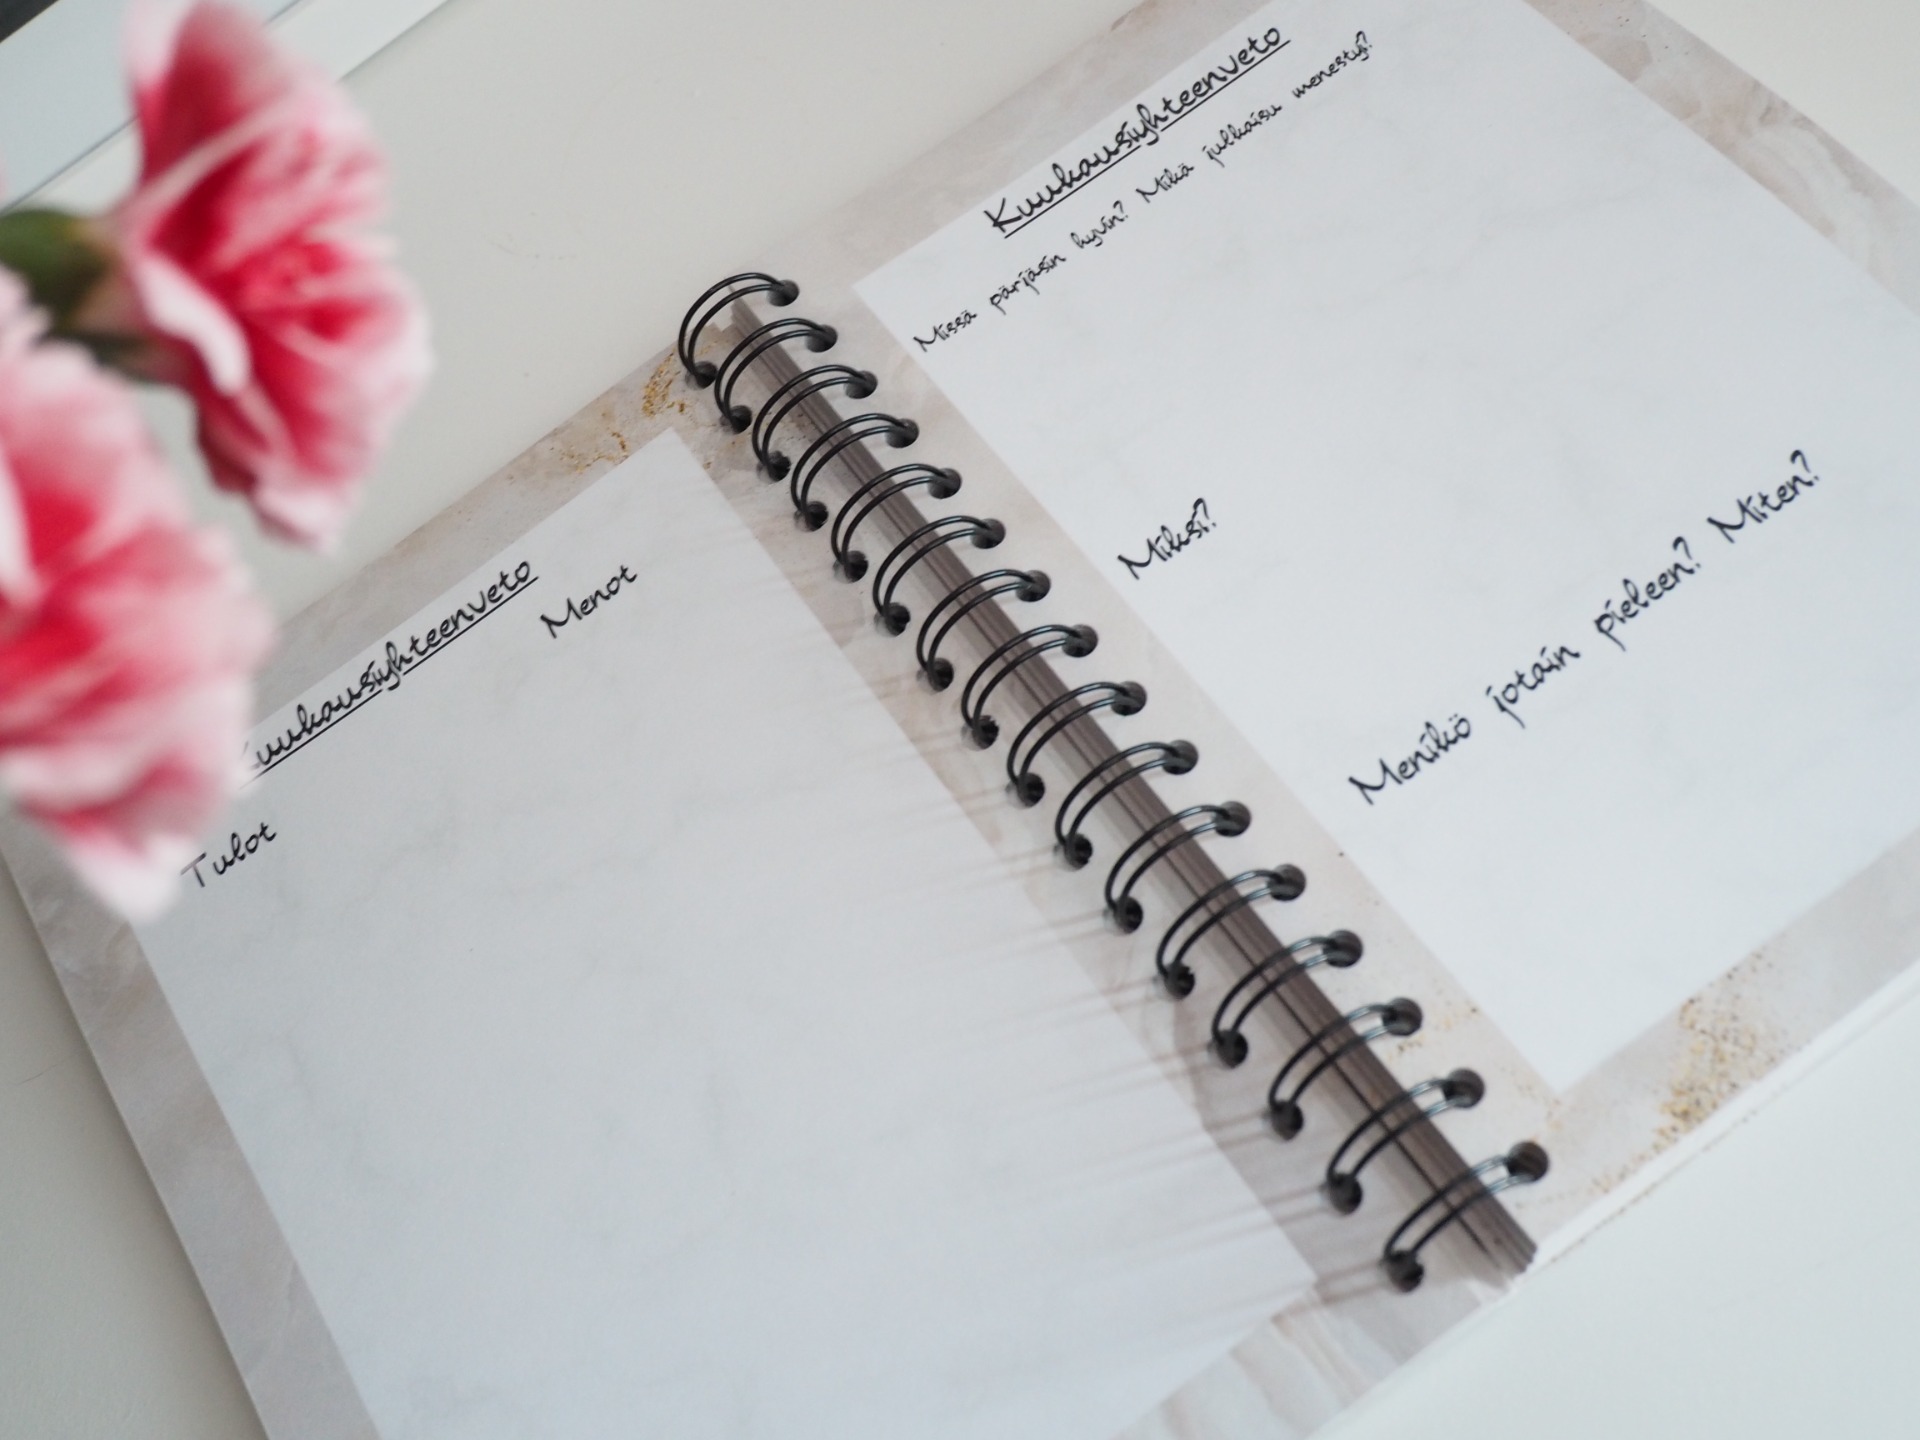 Kuukausiyhteenveto
Tulot
Menot
Kuukausiyhteenveto
Missä pärjäsin hyvin? Mikä julkaisu menestyi?
Miksi?
Menikö jotain pieleen? Miten?